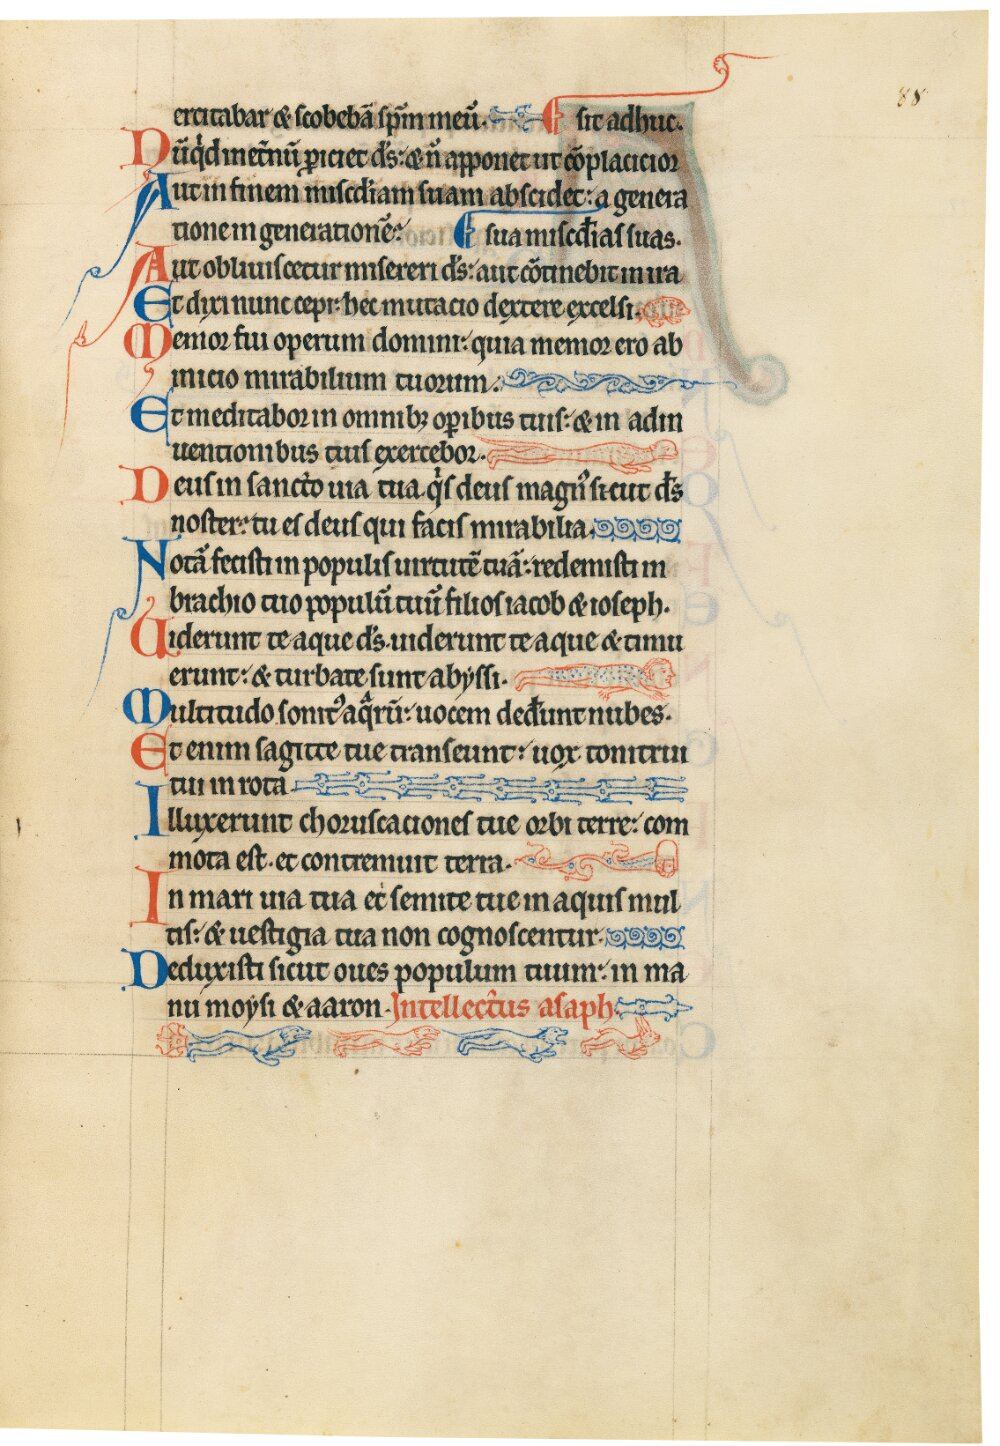 88
ercitabar & scobebā sp̄m meū. sit adhuc.
Nūq̍d in et̄nū ꝓiciet d̄s: & ñ apponet ut cōplacicior
Aut in finem miscdiam suam abscidet: a genera
tione in generationē: sua miscd̄ias suas.
Aut obliuiscetur misereri d̄s: aut cōtinebit in ira
Et dixi nunc cepi: hec mutacio dextere excelsi.
Memor fui operum domini: quia memor ero ab
inicio mirabilium tuorum.
Et meditabor in omnibꝫ oꝑibus tuis: & in adin
uentionibus tuis exercebor.
Deus in sancto uia tua. q̍s deus magn᾽ sicut d̄s
noster: tu es deus qui facis mirabilia.
Notā fecisti in populis uirtutē tuā: redemisti in
brachio tuo populū tuū filios iacob & ioseph.
Uiderunt te aque d̄s. uiderunt te aque & timu
erunt: & turbate sunt abyssi.
Multitudo sonit᾽ aq̄rū: uocem ded̄unt nubes.
Etenim sagitte tue transeunt: uox tonitrui
tui in rota
Illuxerunt choruscaciones tue orbi terre: com
mota est. et contremuit terra.
In mari uia tua et semite tue in aquis mul
tis: & uestigia tua non cognoscentur.
Deduxisti sicut oues populum tuum: in ma
nu moysi & aaron. Intellectus asaph.